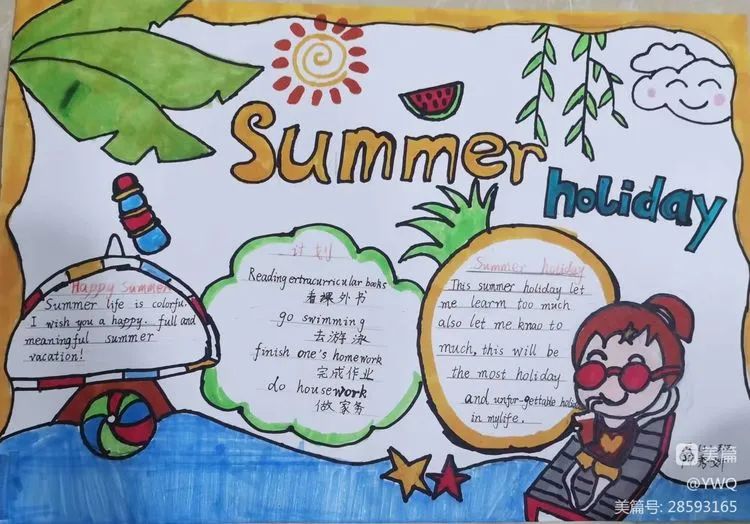 Summer
holiday
Happy Summer
Summer life is colorful.
I wish you a happy. full and
meaningful summer
vacation!
计划
Reading ertracurricular books
看课外书
go swimming
去游泳
finish one's homework
完成作业
do housework
做家务
Summer holiday
This summer holiday let
me learm too much
also let me knao to
much, this will be
the most holiday
and unfor-gottable holiday
in mylife.
美篇
@YWQ
美篇号: 28593165